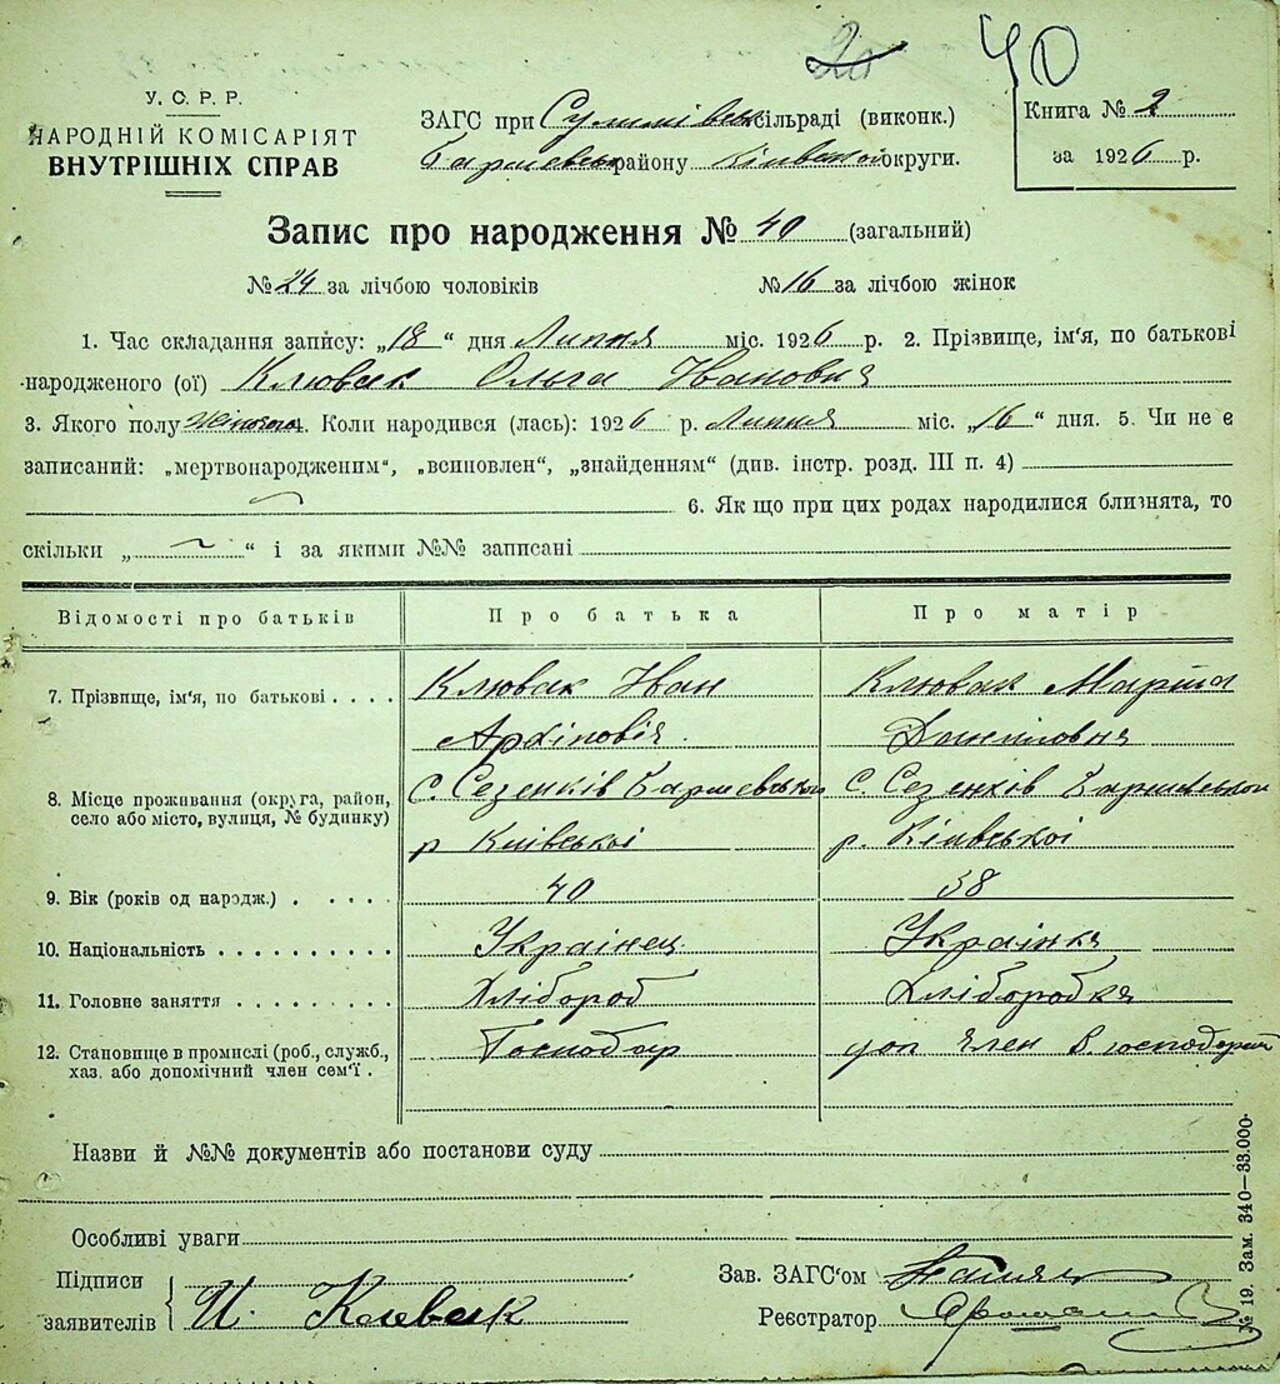 20 40
У. С. Р. Р.
НАРОДНІЙ КОМІСАРІЯТ
ВНУТРІШНІХ СПРАВ
ЗАГС при Сулимівськ сільраді (виконк.)
району Київської округи.
Книга № 2
за 1926 р.
Запис про народження № 40 (загальний)
№ 24 за лічбою чоловіків № 16 за лічбою жінок
1. Час складання запису: „18“ дня Липня міс. 1926 р. 2. Прізвище, ім‘я, по батькові
народженого (ої) Клювак Ольга Івановня
3. Якого полу жіночого 4. Коли народився (лась): 1926 р. Липня міс. „16“ дня. 5. Чи не є
записаний: „мертвонародженим“, „всиновлен“, „знайденням“ (див. інстр. розд. III п. 4)
6. Як що при цих родах народилися близнята, то
скільки „ “ і за якими №№ записані
Відомості про батьків Про батька Про матір
7. Прізвище, ім‘я, по батькові . . . . Клювак Іван Клювак
Архіповія
8. Місце проживання (округа, район, с. Сезенків с. Сезенків
село або місто, вулиця, № будинку) р Київської р. Київської
9. Вік (років од народж.) . . . . . 40 38
10. Національність . . . . . . . . . . Українец Українка
11. Головне заняття . . . . . . . . . Хлібороб Хліборобка
12. Становище в промислі (роб., служб., Господар доп член в. господарт
хаз. або допомічний член сем‘ї .
Назви й №№ документів або постанови суду
Особливі уваги
Підписи
заявителів И. Клевак
Зав. ЗАГС‘ом
Реєстратор
№ 19. Зам. 340—33.000.